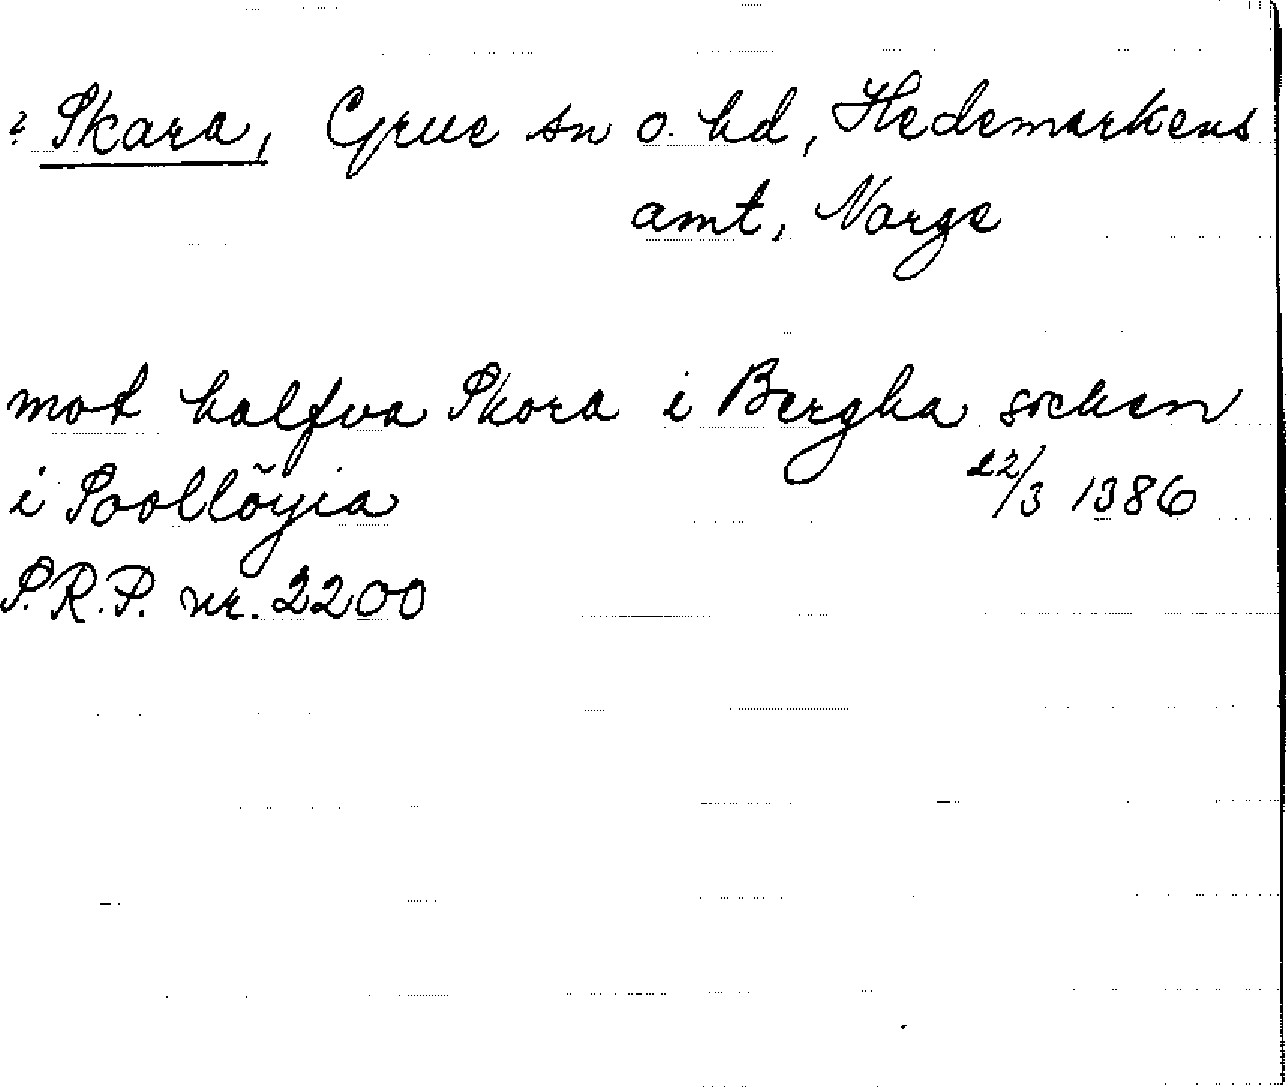 ? Skara, Grue sn o. hd, Hedemarkens
amt, Norge
mot halfva Skora i Bergha socken
i Soollöyia 22/3 1386
S.R.P. nr. 2200